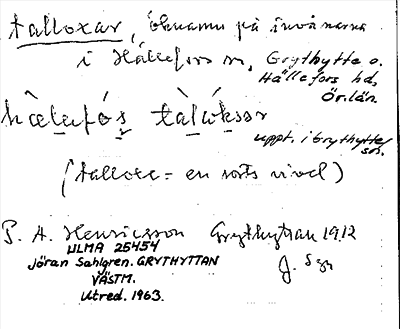 talloxar, öknamn på invånarna
i Hällefors sn, Grythytte o.
Hällefors hd,
Ör. län.
hæ̀lefós tàlóksar
uppt. i Grythytte
sn.
(talloxe = en sorts nivel)
P. A. Henricsson Grythyttan 1912
ULMA 25454 J. Sgn
Jöran Sahlgren. GRYTHYTTAN
VÄSTM.
Utred. 1963.